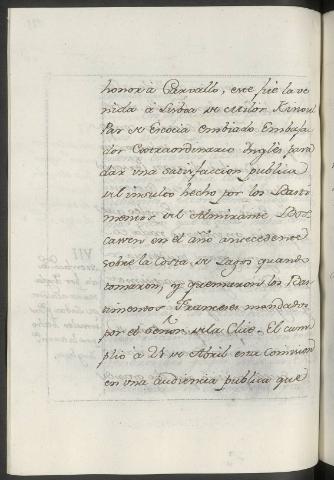 honor à Carvallo, este fue la ve
nida à Lisboa de Milor Kinoul
Par de Escocia embiado Embaxa
dor Extraordinario Inglès para
dar una satisfaccion publica
del insulto hecho por los Basti
mentos del Almirante Bos
cawen en el año antecedente
sobre la Costa de Lagos quando
tomaron, y quemaron los Bas
timentos Franceses mandados
por el Señor de la Clue. El cum
plio à 24 de Abril esta Comision
en una audiencia publica que